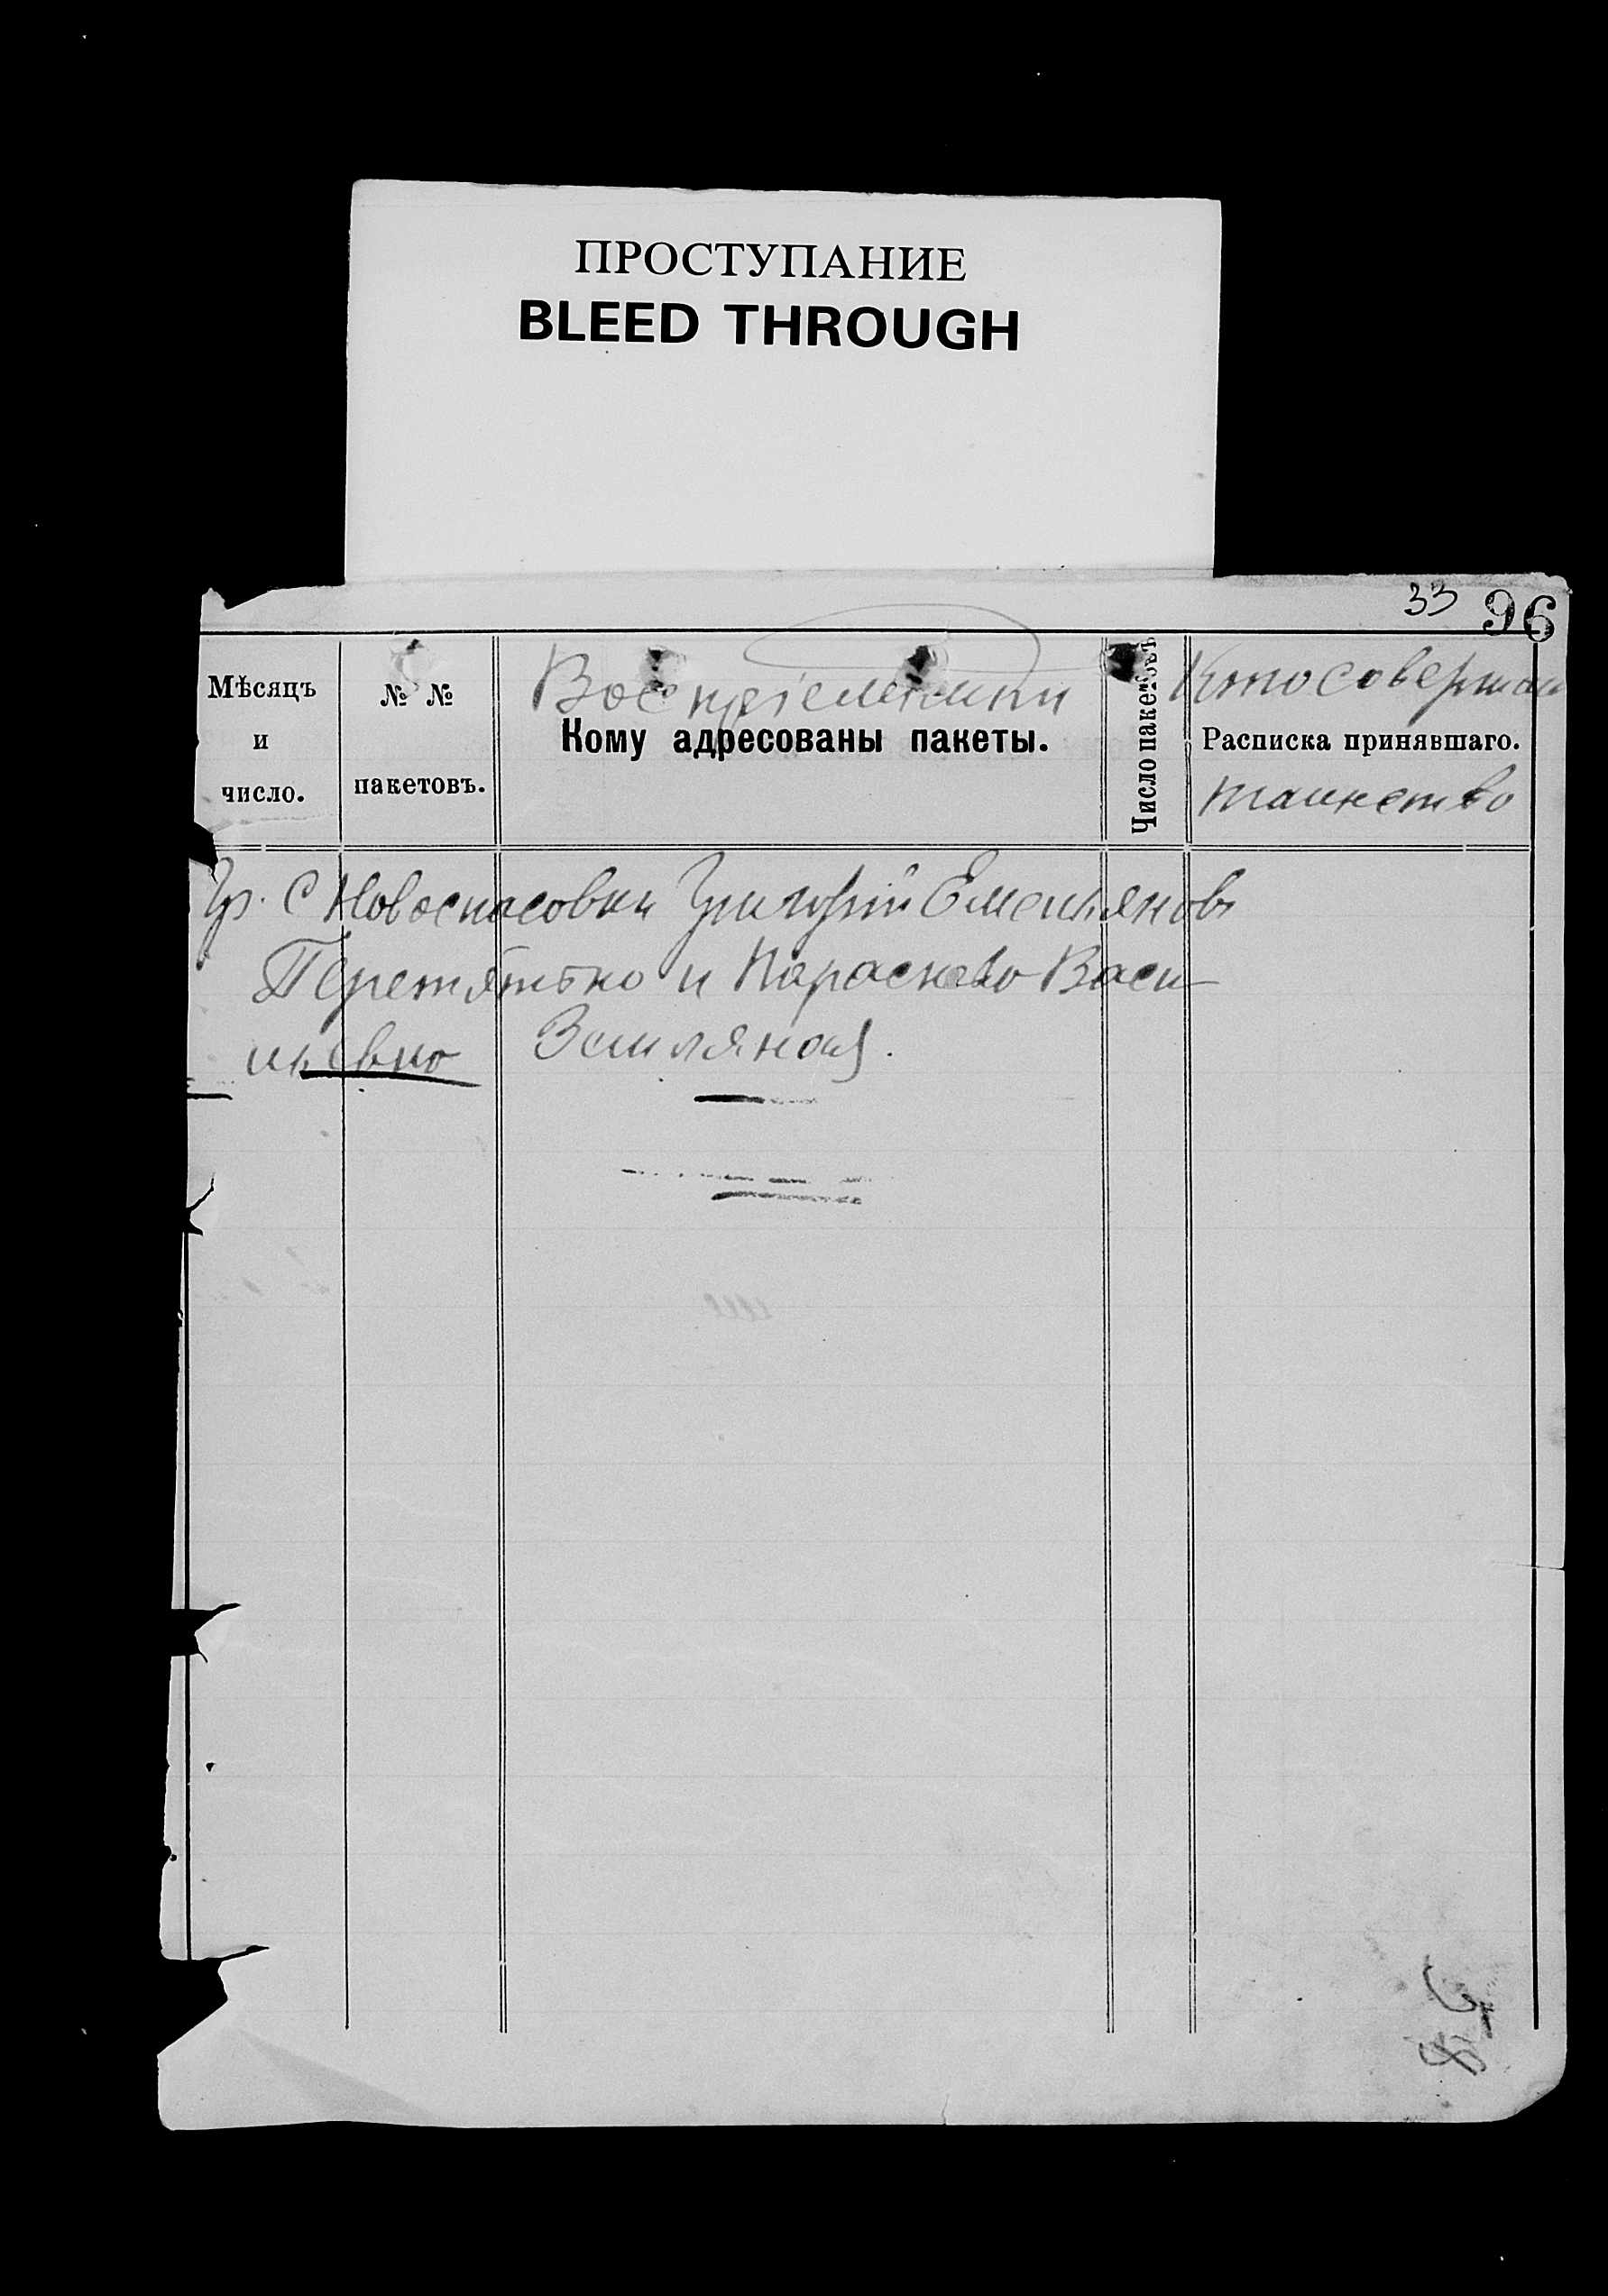 ПРОСТУПАНИЕ
BLEED THROUGH
33 96
Мѣсяцъ
и
число.
№ №
пакетовъ.
Воспріемники
Кому адресованы пакеты.
Число пакетовъ
Кто соверш
Расписка принявшаго.
таинство
Гр. С Новоспасовки Григорій Емельяновъ
Перетятько и Параскева Васи-
льевно Земляная.